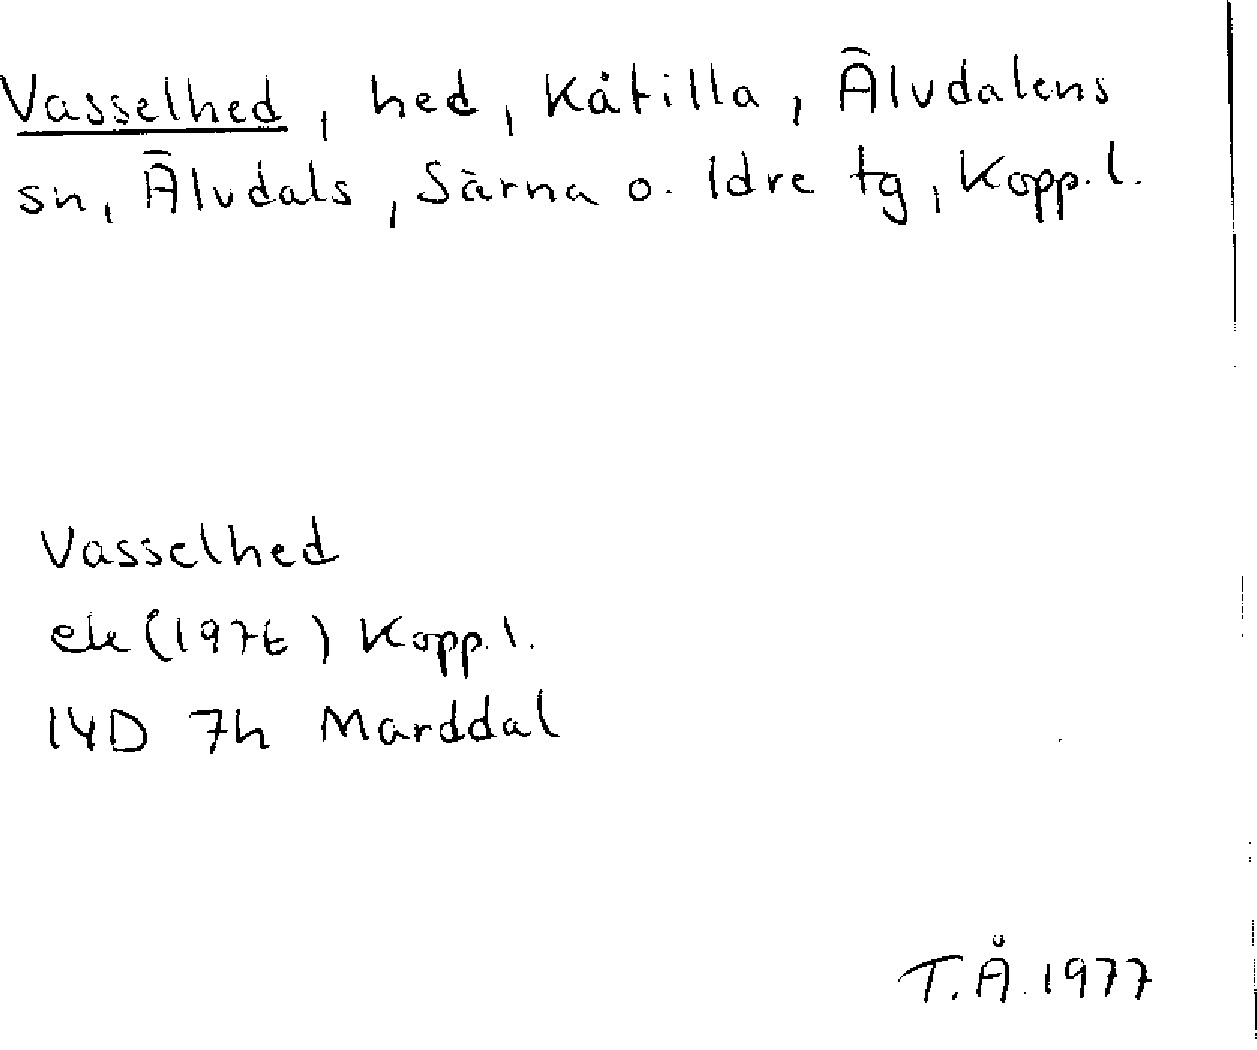 Vasselhed, hed, Kåtilla, Älvdalens
sn, Älvdals, Särna o. Idre tg, Kopp. l.
Vasselhed
ek (1976) Kopp. l.
14D 7h Marddal
T.Å. 1977